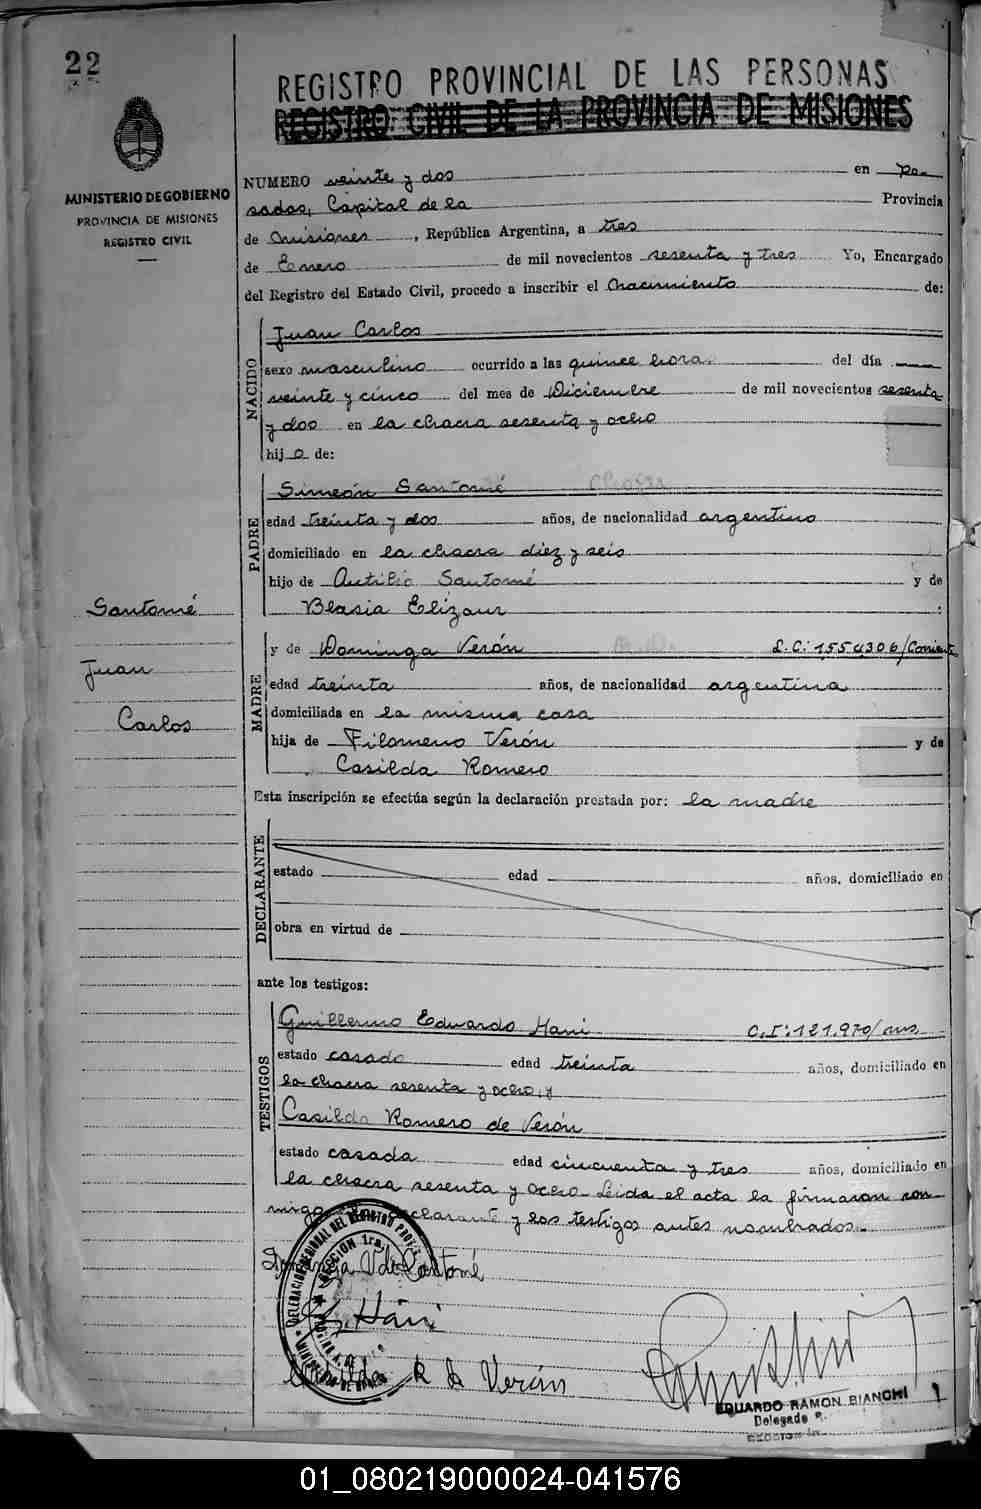 22
REGISTRO PROVINCIAL DE LAS PERSONAS
REGISTRO CIVIL DE LA PROVINCIA DE MISIONES
MINISTERIO DE GOBIERNO
PROVINCIA DE MISIONES
REGISTRO CIVIL
NUMERO veinte y dos en Po-
sadas, Capital de la Provincia
de Misiones, República Argentina, a tres
de Enero de mil novecientos sesenta y tres Yo, Encargado
del Registro del Estado Civil, procedo a inscribir el Nacimiento de:
NACIDO
Juan Carlos
sexo masculino ocurrido a las quince horas del día
veinte y cinco del mes de Diciembre de mil novecientos sesenta
y dos en la chacra sesenta y ocho
hijo de:
PADRE
Simeón Santomé
edad treinta y dos años, de nacionalidad argentino
domiciliado en la chacra diez y seis
hijo de Santomé y de
Blasia Elizaur
Santomé
Juan
Carlos
MADRE
y de Dominga Verón L.C: 1554306/Corrientes
edad treinta años, de nacionalidad argentina
domiciliada en la misma casa
hija de Filomeno Verón y de
Casilda Romero
Esta inscripción se efectúa según la declaración prestada por: la madre
DECLARANTE
estado edad años, domiciliado en
obra en virtud de
ante los testigos:
TESTIGOS
Guillermo Eduardo Hani C.I: 121.970/mns
estado casado edad treinta años, domiciliado en
la chacra sesenta y ocho, y
Casilda Romero de Verón
estado casada edad cincuenta y tres años, domiciliado en
la chacra sesenta y ocho. Leida el acta la firmaron con-
migo declarante y los testigos antes nombrados.-
Dominga V de Santomé
Hani
Casilda R de Verón
EDUARDO RAMON BIANCHI
Delegado
01_080219000024-041576